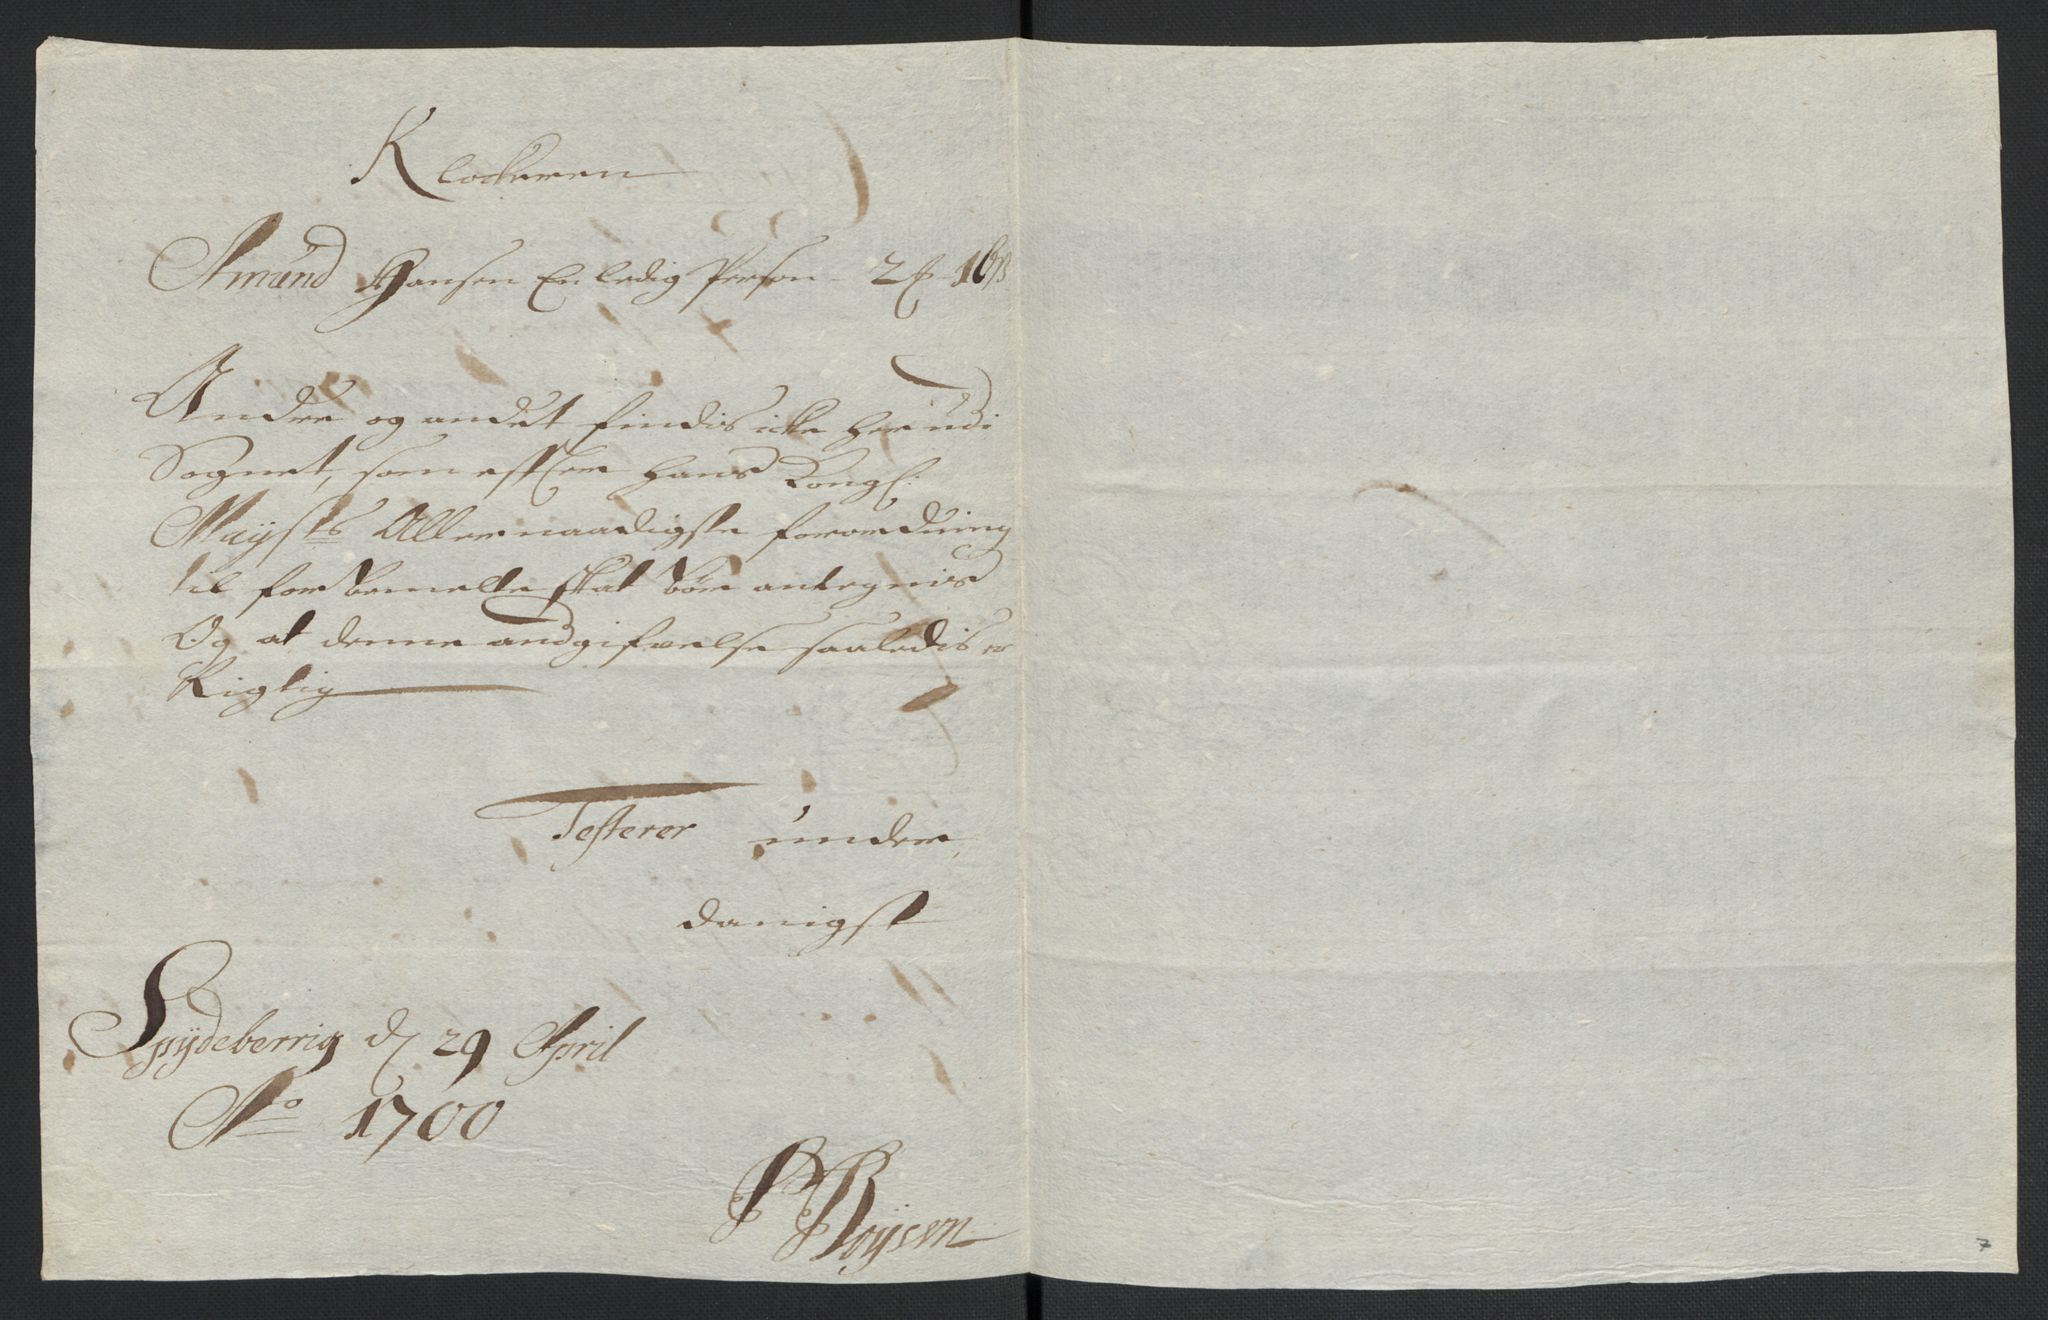 Klockeren
Amund Hansen En ledig Person - 2 - 16 ß
Andre og andet findis icke her udi
Sognet, som efter Hans Kongl:
Mayst:s Allernaadigste forordning
til forbemelte skat bør antegnis
Og at denne andgifvelse saaledis er
Rigtig
Testerer under
danigst
Spydeberrig d 29 April
Ao 1700
P Boysen
7